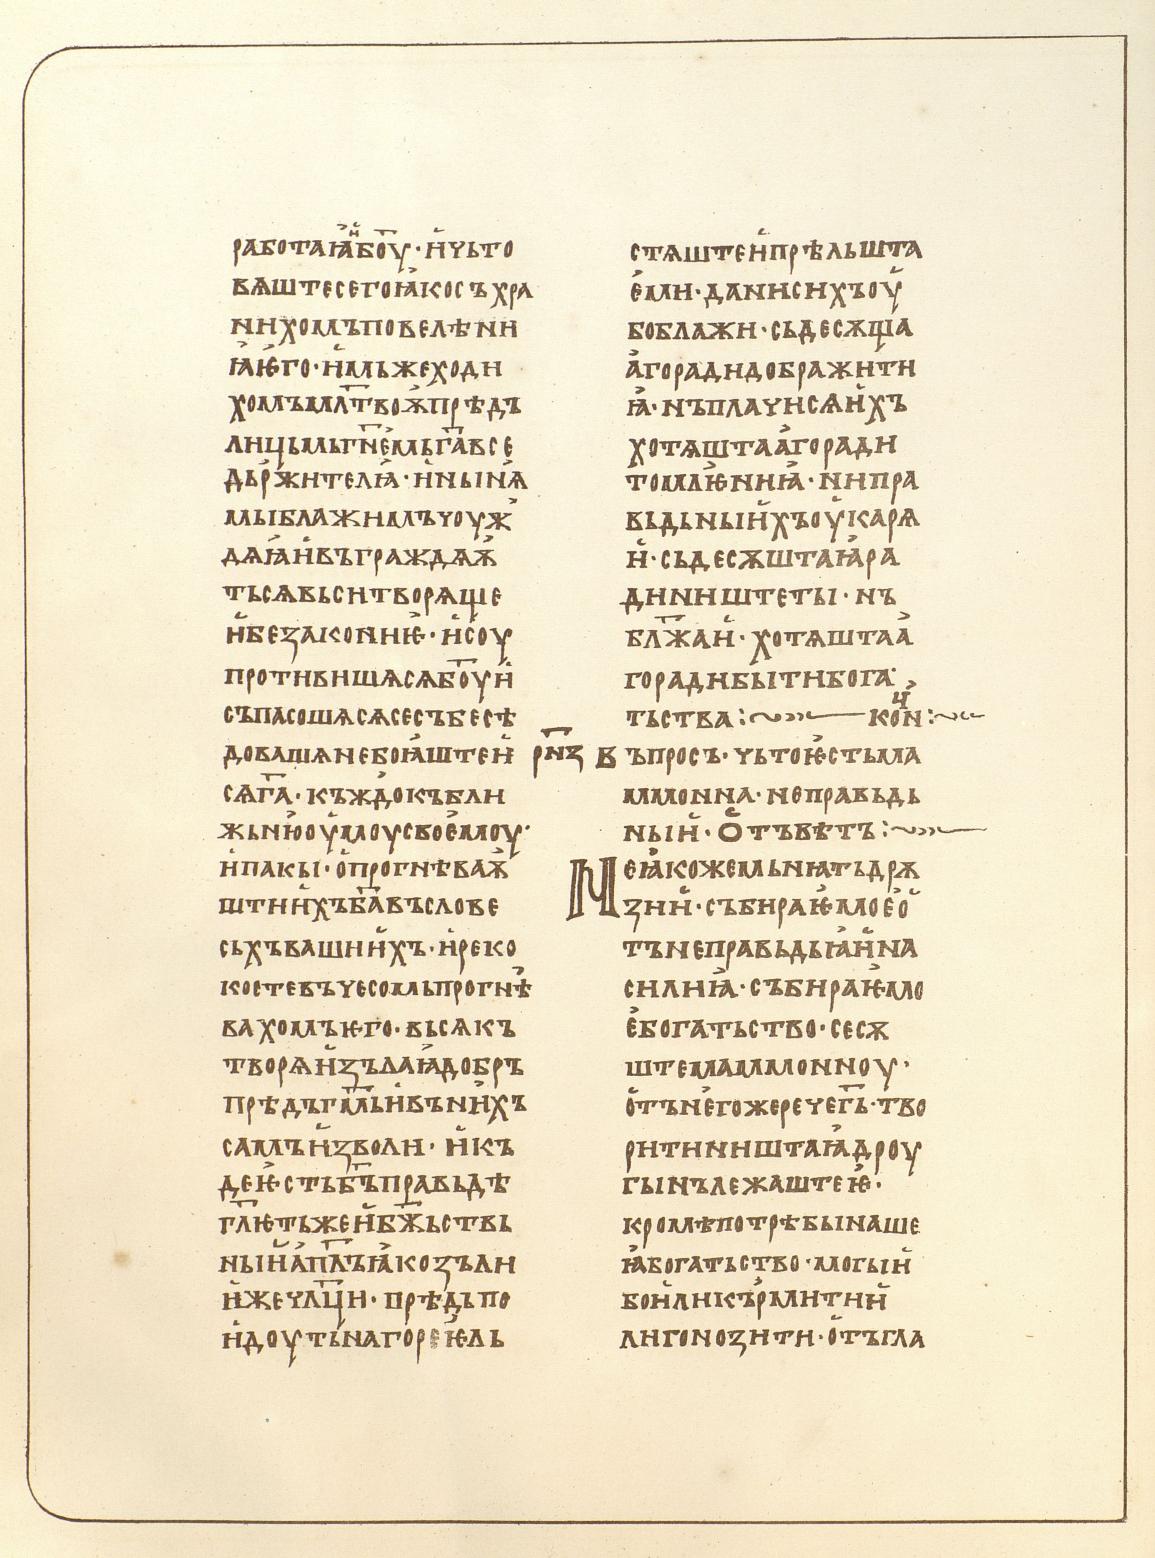 работаѩи҆боу·и҆чьто
вѧштесегоꙗ҆косъхра
нихомъповелѣни
ꙗ҆ѥ҆го·и҆мьжеходи
хомъмл҃твоѫ҆прѣдъ
лицьмьгн҃е҆мьга҃все
дьржителꙗ҆·и҆нꙑнꙗ҆
мꙑблажимъчоуѫ҆
дѧꙗ҆и҆въграждѧѫ҆
тьсѧвьситворѧще
и҆безаконниѥ·и҆соу
противишѧсѧбо҃уи҆
съпасошѧсѧсесъбесѣ
довашѧнебоꙗ҆штеи҆
сѧга҃·къждокъбли
жьнюоу҆моусвоѥ҆моу·
и҆пакꙑ·о҆прогнѣваѭ҆
штии҆хъба҃въслове
сьхъвашии҆хъ·и҆реко
костевъчесомьпрогнѣ
вахомъѥго·вьсѧкъ
творѧи҆зълаꙗ҆добръ
прѣдъгм҃ьи҆въни҆хъ
самъи҆зволи·и҆къ
деѥ҆стьбъ҃правьдѣ
гл҃ѥтьжеи҆бж҃ьствь
нꙑи҆а҆пл҃ъꙗ҆козъли
и҆жечл҃ци·прѣдьпо
и҆доутьнагореѥ҆ль
стѧштеи҆прѣльшта
е҆ми·данисихъоу҆
боблажи·сьдесѫщꙗ
а҆горадидображити
ꙗ҆·нъплачисѧи҆хъ
хотѧштаа҆горади
томлѥ҆ниꙗ҆·нипра
вьдьнꙑи҆хъоу҆карѧ
и҆·сьдесѫштаꙗ҆ра
диништетꙑ·нъ
бл҃жаи҆·хотѧштаа҆
горадибꙑтибога
тьства:~ кон҃ч:~
рн҃з въпросъ·чьтоѥ҆стьма
ммонна·неправьдь
нꙑи҆·о҆тъвѣтъ:~
Неꙗ҆кожемьнꙗтьдрѫ
зии҆·събираѥ҆моео҆
тънеправьдꙑꙗ҆и҆на
силиꙗ҆·събираѥ҆мо
е҆богатьство·сесѫ
штемаммонноу·
о҆тън҄егожеречегь҃·тво
ритиништаꙗ҆дроу
гꙑнълежаштеѥ҆·
кромѣпотрѣбꙑнаше
ꙗ҆богатьство·могꙑи҆
бои҆ликърмитии҆
лигонозити·о҆тъгла